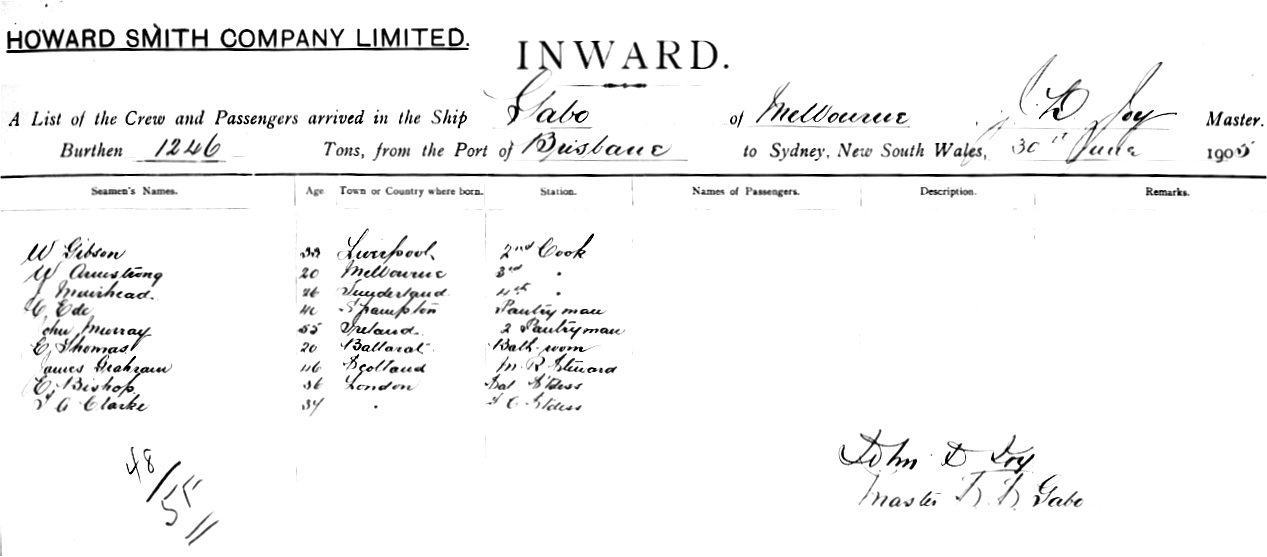 HOWARD SMITH COMPANY LIMITED.
INWARD.
A List of the Crew and Passengers arrived in the Ship Gabo of Melbourne J D Joy Master.
Burthen 1246 Tons, from the Port of Brisbane to Sydney, New South Wales, 30th June 1905
Seamen's Names. Age Town or Country where born. Station. Names of Passengers. Description. Remarks.
W Gibson 33 Liverpool 2nd Cook
W Armstrong 20 Melbourne 3rd "
J Muirhead. 26 Sunderland 4th "
C Ede 40 S'hampton Pantryman
John Murray 55 Ireland 2 Pantryman
E Thomas 20 Ballarat Bath-room
James Graham 46 Scotland M. R. Steward
E. Bishop 36 London Sal S'dess
A Clarke 34 " S'dess
48/55
11
John D Joy
Master Gabo